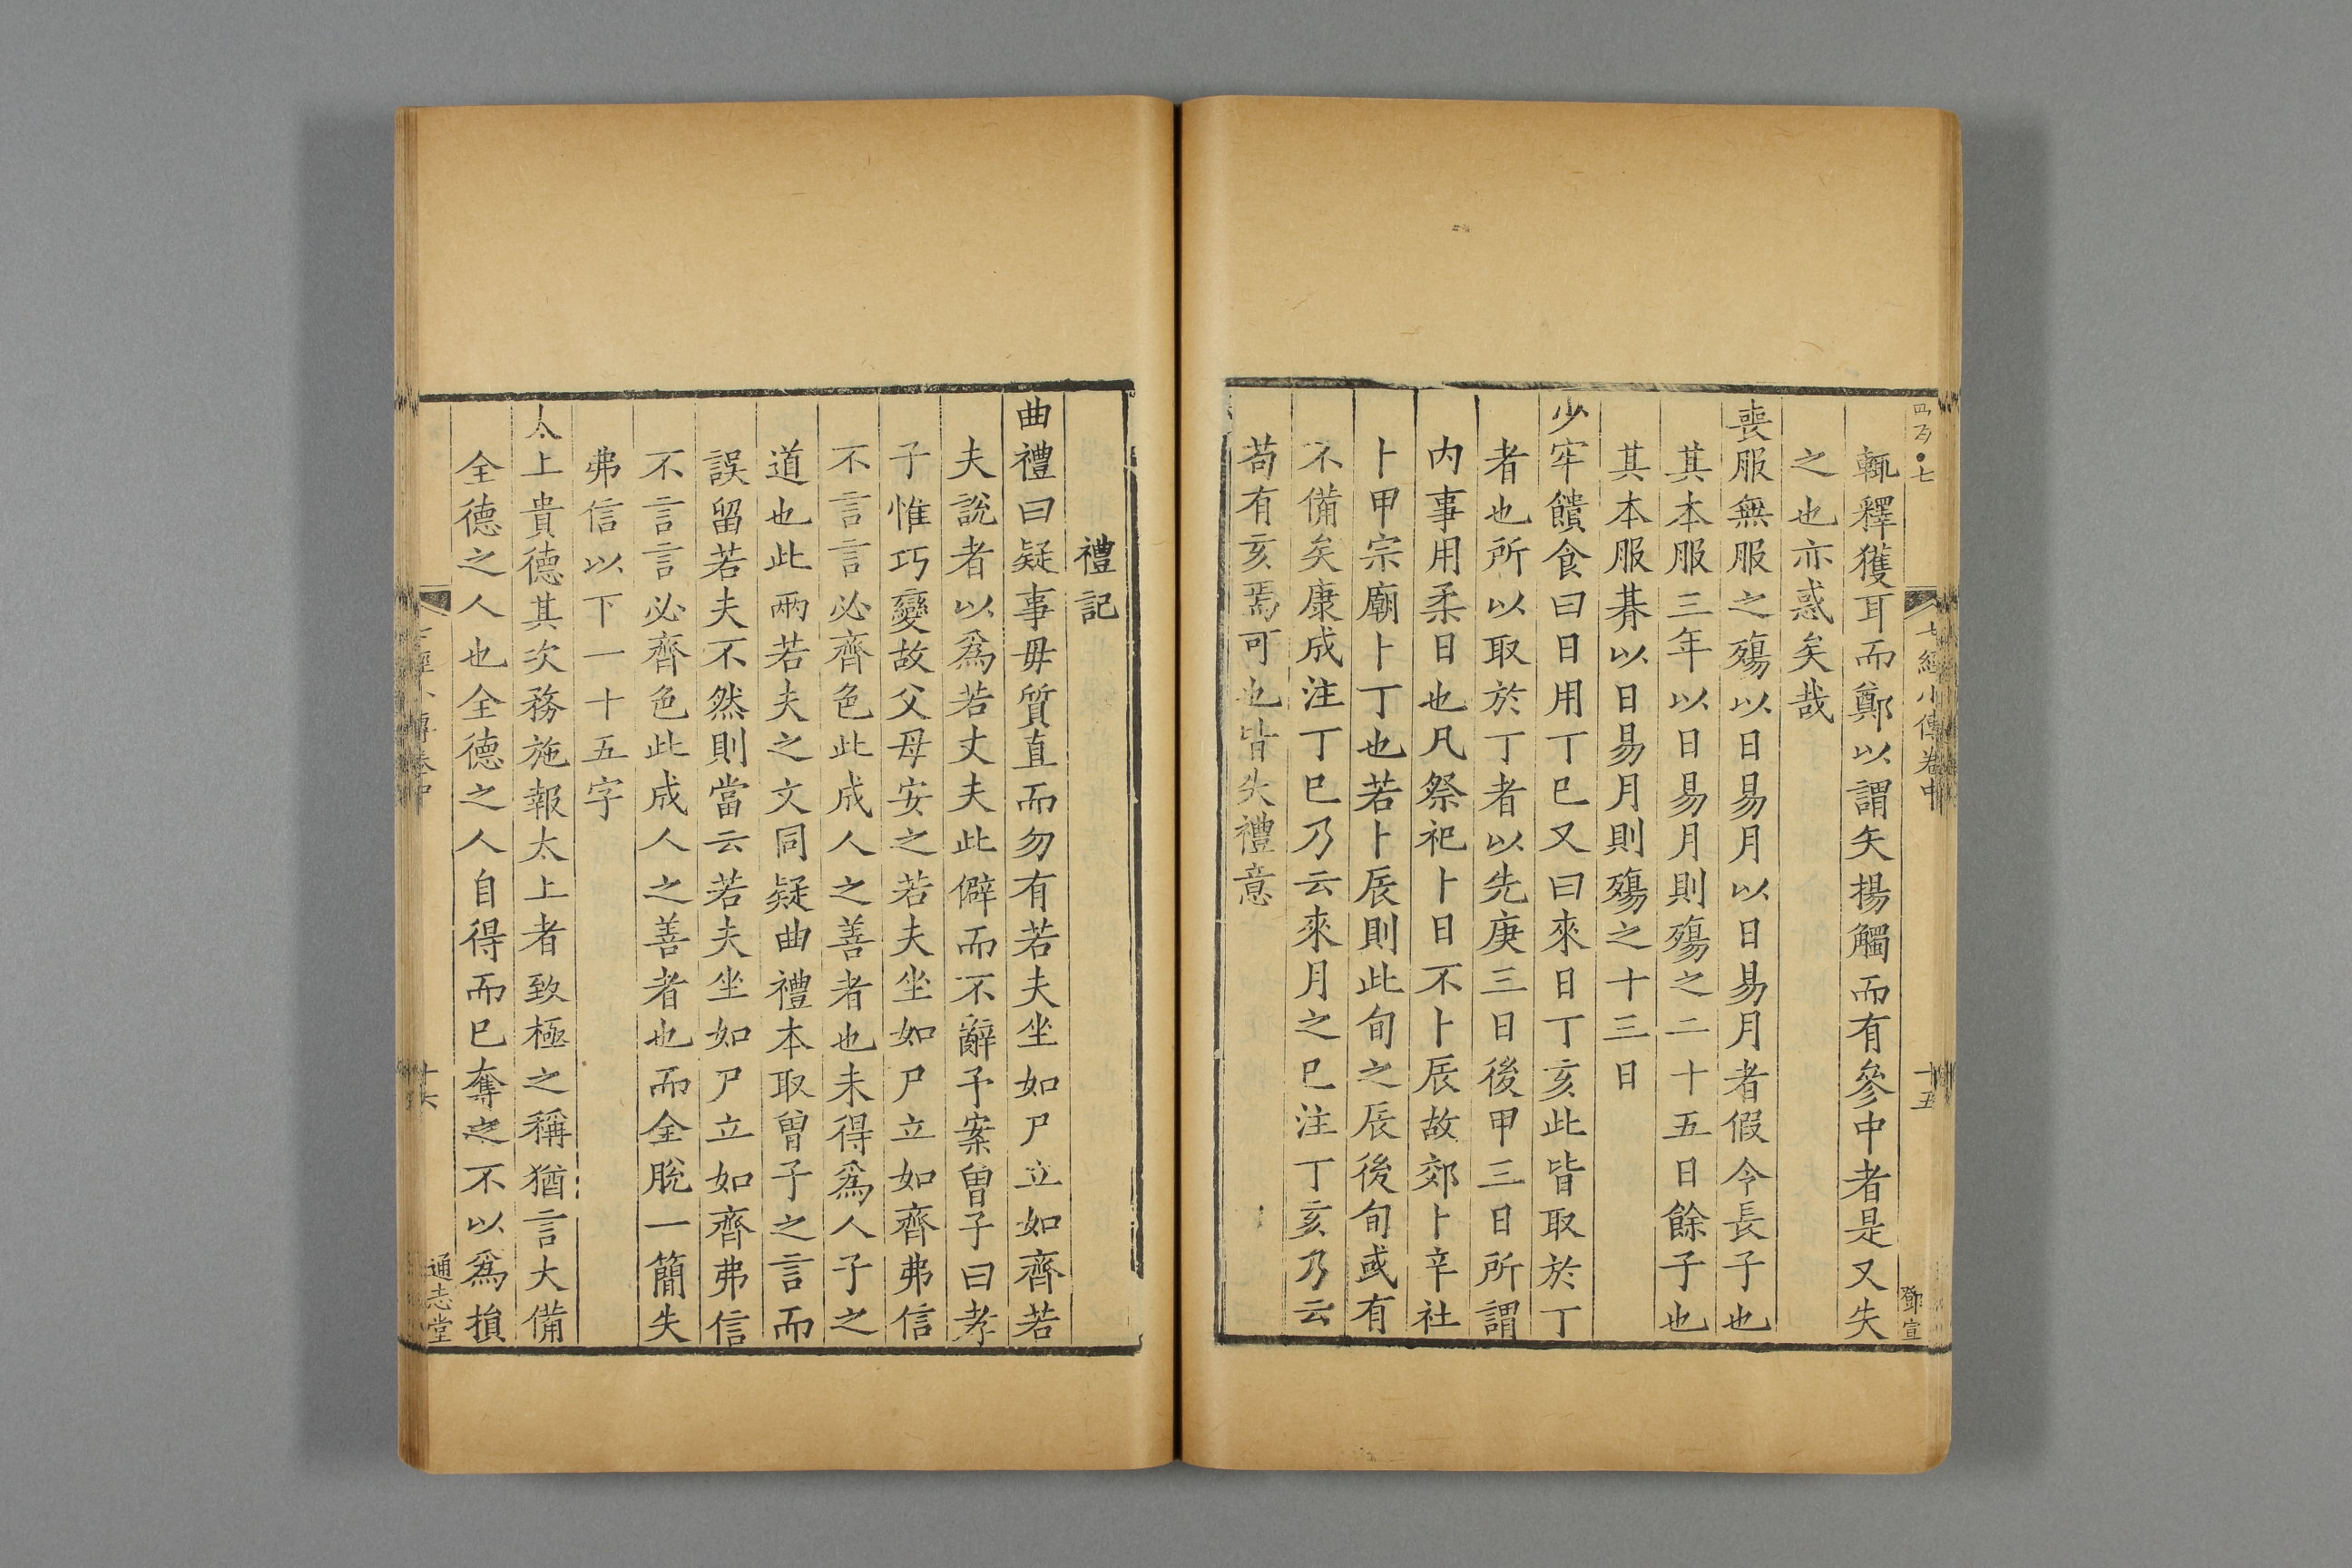 四百●七
七經小傳卷中
十五
鄧宣
輒釋獲耳而鄭以謂矢揚觸而有參中者是又失
之也亦惑矣哉
喪服無服之殤以日易月以日易月者假令長子也
其本服三年以日易月則殤之二十五日餘子也
其本服朞以日易月則殤之十三日
少牢饋食曰日用丁巳又曰來日丁亥此皆取於丁
者也所以取於丁者以先庚三日後甲三日所謂
内事用柔日也凡祭祀卜日不卜辰故郊卜辛社
卜甲宗廟卜丁也若卜辰則此旬之辰後旬或有
不備矣康成注丁巳乃云來月之巳注丁亥乃云
苟有亥焉可也皆失禮意
禮記
曲禮曰疑事毋質直而勿有若夫坐如尸立如齊若
夫說者以爲若丈夫此僻而不辭予案曽子曰孝
子惟巧變故父母安之若夫坐如尸立如齊弗信
不言言必齊色此成人之善者也未得爲人子之
道也此兩若夫之文同疑曲禮本取曽子之言而
誤留若夫不然則當云若夫坐如尸立如齊弗信
不言言必齊色此成人之善者也而全脫一簡失
弗信以下一十五字
太上貴德其次務施報太上者致極之稱猶言大備
全德之人也全德之人自得而巳奪之不以爲損
七經小傳卷中
十六
通志堂